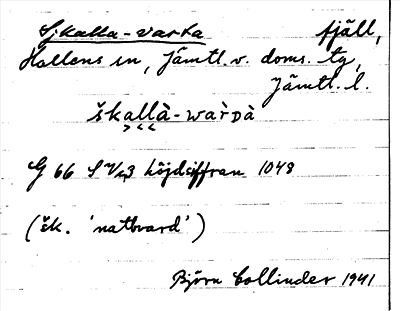 Sjkalla-varta fjäll,
Hallens sn, Jämtl. v. doms. tg,
Jämtl. l.
škallà-warDà
G 66 höjdsiffran 1048
(šk. 'nattvard')
Björn Collinder 1941